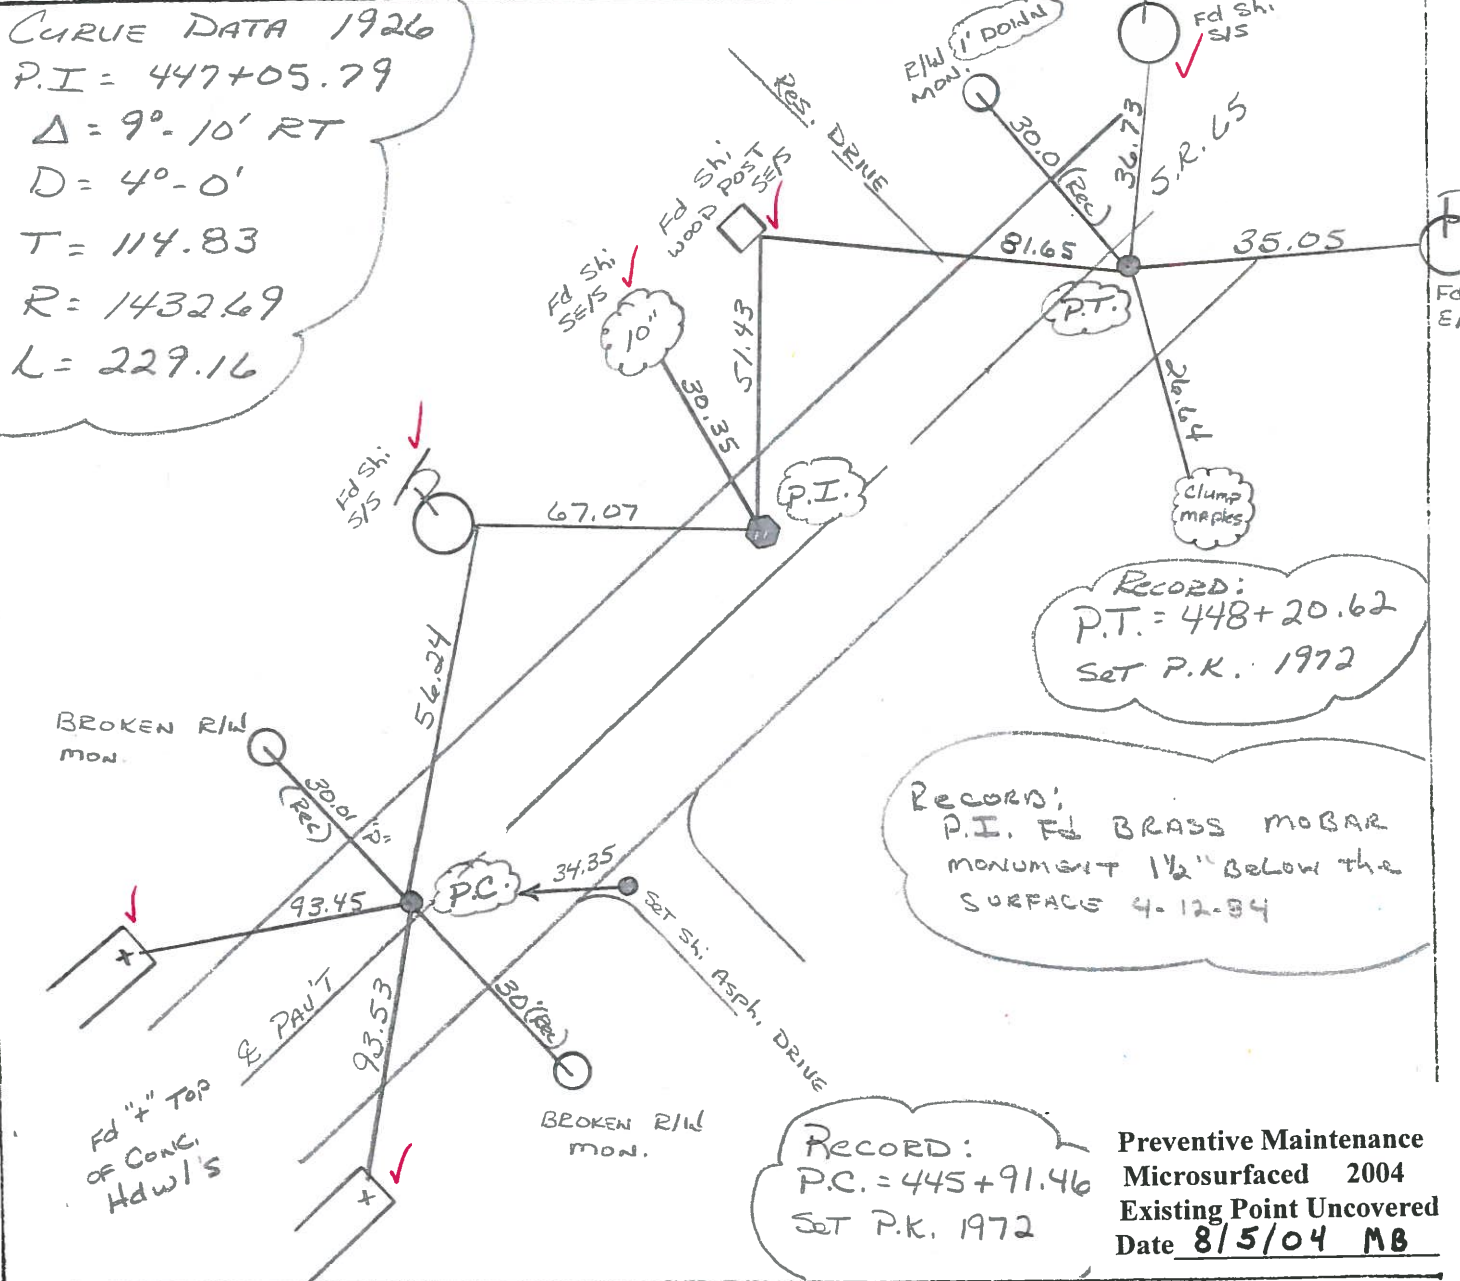 CURVE DATA 1926
P.I = 447+05.79
Δ = 9°-10' RT
D = 4°-0'
T = 114.83
R = 1432.69
L = 229.16
R/W MON.
1' DOWN
Fd Shi
S/S
30.0
(Rec)
36.73
S.R. 65
Res. DRIVE
Fd Shi
WOOD POST
SE/S
81.65
35.05
P.T.
Fd Shi
SE/S
10"
51.43
30.35
26.64
Clump
maples
Fd Shi
S/S
67.07
P.I.
RECORD:
P.T. = 448+20.62
SET P.K. 1972
56.24
BROKEN R/W
MON.
30.01
(Rec)
RECORD:
P.I. Fd BRASS MOBAR
MONUMENT 1½" BELOW the
SURFACE 4-12-84
93.45
P.C.
34.35
SET Shi
Asph. DRIVE
℄ PAV'T
93.53
30' (Rec)
Fd "+" TOP
OF CONC.
Hdwl's
BROKEN R/W
MON.
RECORD:
P.C. = 445+91.46
SET P.K. 1972
Preventive Maintenance
Microsurfaced 2004
Existing Point Uncovered
Date 8/5/04 MB